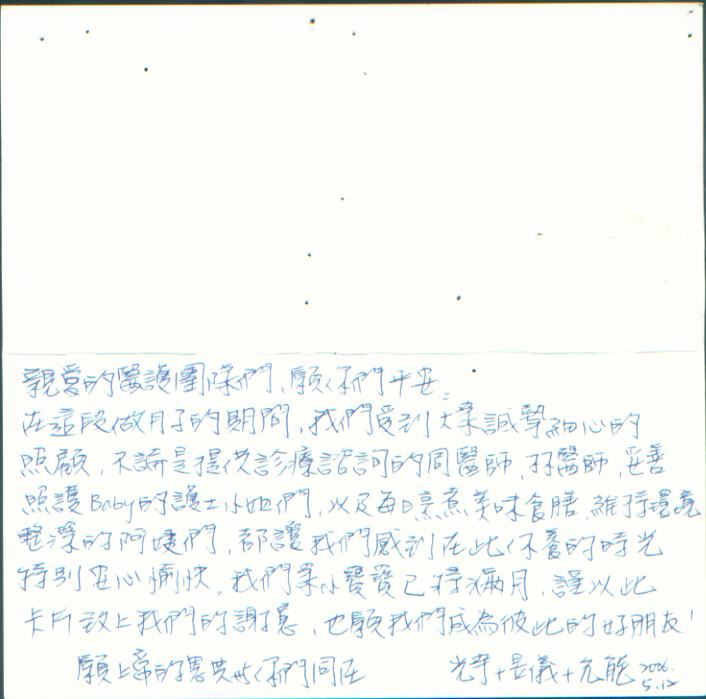 親愛的醫護團隊們，願你們平安：
在這段做月子的期間，我們受到大家誠摯細心的
照顧，不論是提供診療諮詢的周醫師、孫醫師，妥善
照護Baby的護士小姐們，以及每日烹煮美味食膳、維持環境
整潔的阿姨們，都讓我們感到在此休養的時光
特別安心愉快。我們家小寶寶已將滿月，謹以此
卡片致上我們的謝意，也願我們成為彼此的好朋友！
願上帝的恩典與你們同在 光宇+昱儀+允能 2006.
5.12